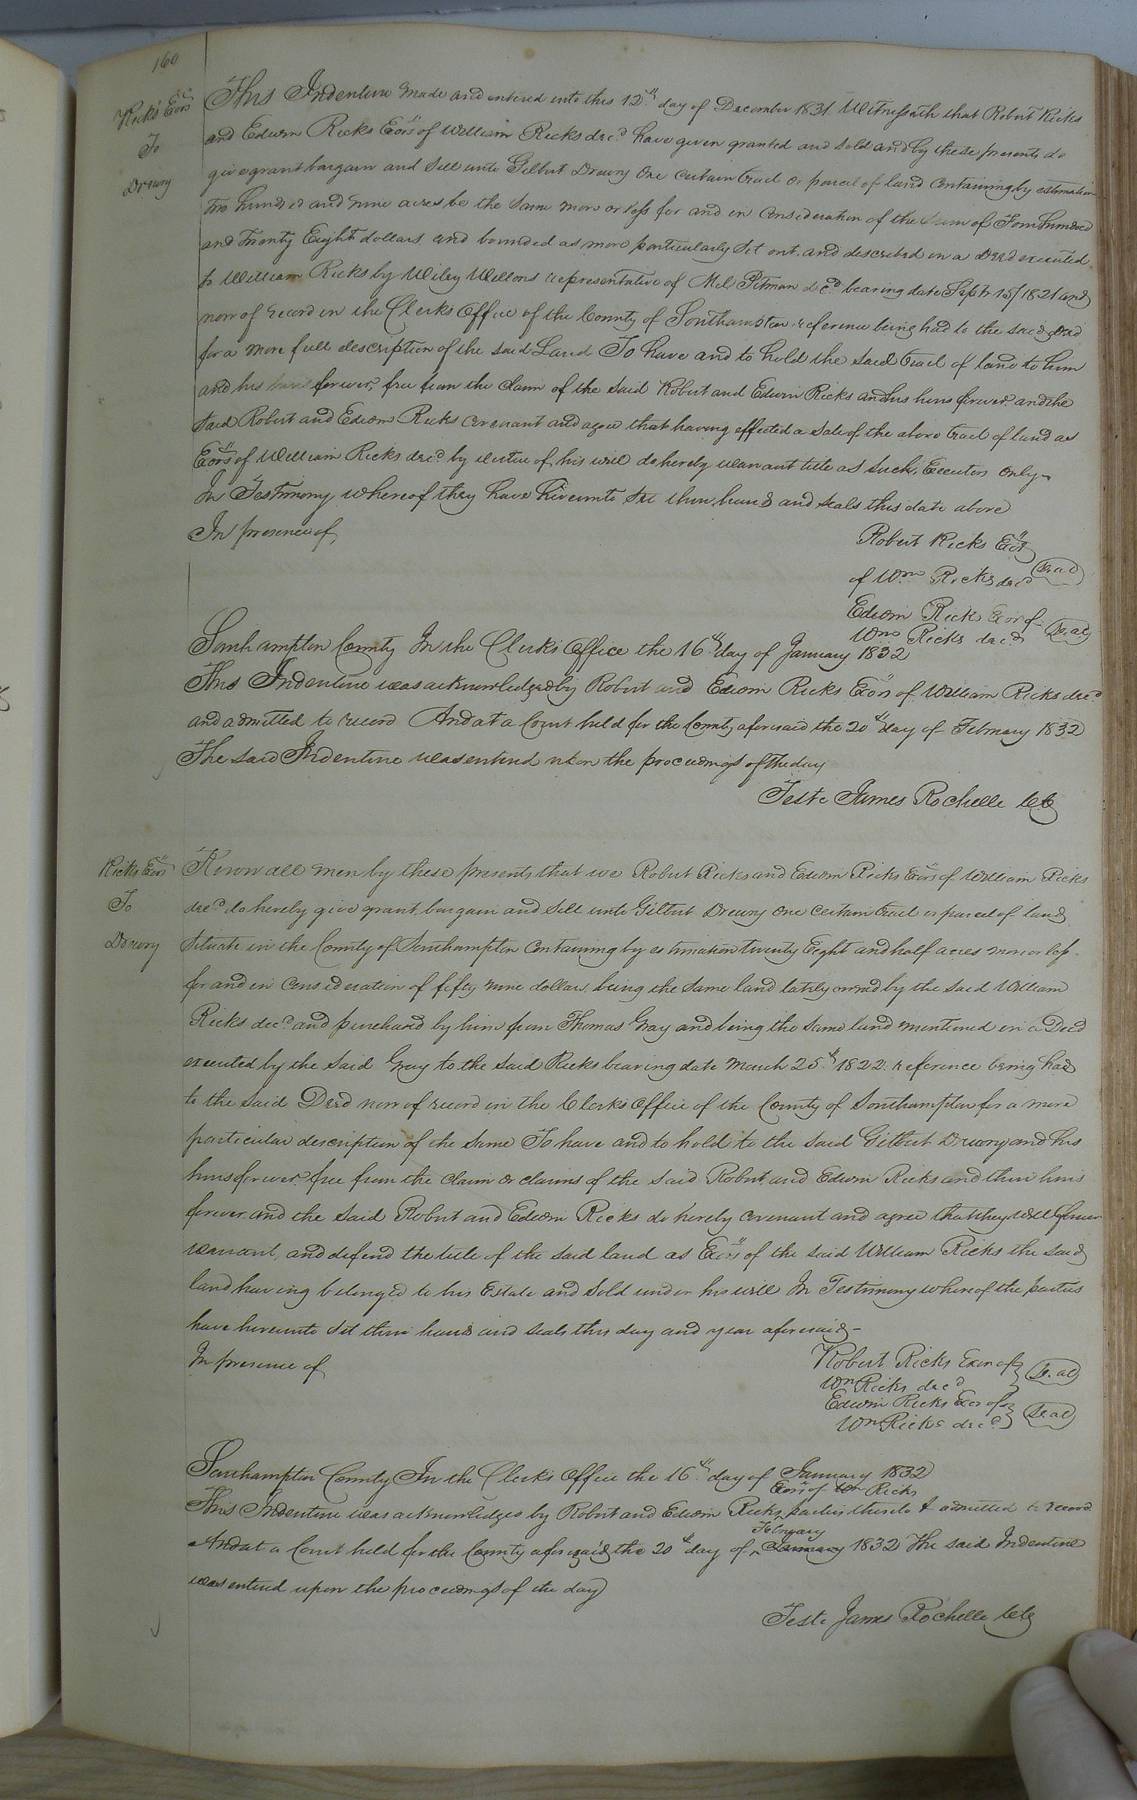 160
Ricks Exors
To
Drewry
This Indenture made and entered into this 12th day of December 1831 Witnesseth that Robert Ricks
and Edwin Ricks Exors of William Ricks decd have given granted and sold and by these presents do
give grant bargain and sell unto Gilbert Drewry One certain tract or parcel of land containing by estimation
two hundred and nine acres be the same more or less for and in consideration of the sum of Four hundred
and Twenty Eight dollars and bounded as more particularly set out and described in a Deed executed
to William Ricks by Wiley Wellons representative of Mel Pitman decd bearing date Septr 15th 1821 and
now of record in the Clerks Office of the County of Southampton reference being had to the said deed
for a more full description of the said Land To have and to hold the said tract of land to him
and his heirs forever, free from the claim of the said Robert and Edwin Ricks and his heirs forever and the
said Robert and Edwin Ricks covenant and agree that having effected a sale of the above tract of land as
Exors of William Ricks decd by virtue of his will do hereby warrant title as such Executors only
In Testimony whereof they have hereunto set their hands and seals this date above
In presence of
Robert Ricks Exor
of Wm Ricks decd Seal
Edwin Rick Exor of
Wm Ricks decd Seal
Southampton County In the Clerks Office the 16th day of January 1832
This Indenture was acknowledged by Robert and Edwin Ricks Exors of William Ricks decd
and admitted to record And at a Court held for the County aforesaid the 20th day of February 1832
The said Indenture was entered upon the proceedings of the day
Teste James Rochelle CC
Ricks Exors
To
Drewry
Know all men by these presents that we Robert Ricks and Edwin Ricks Exors of William Ricks
decd do hereby give grant, bargain and sell unto Gilbert Drewry One certain tract or parcel of land
situate in the County of Southampton containing by estimation twenty Eight and half acres more or less
for and in consideration of fifty nine dollars, being the same land lately owned by the said William
Ricks decd and purchased by him from Thomas Gray and being the same land mentioned in a Deed
executed by the said Gray to the said Ricks bearing date March 25th 1822 reference being had
to the said Deed now of record in the Clerks Office of the County of Southampton for a more
particular description of the same To have and to hold to the said Gilbert Drewry and his
heirs forever free from the claim or claims of the said Robert and Edwin Ricks and their heirs
forever and the said Robert and Edwin Ricks do hereby covenant and agree that they will forever
warrant, and defend the title of the said land as Exors of the said William Ricks the said
land having belonged to his Estate and sold under his will In Testimony whereof the parties
have hereunto set their hands and seals this day and year aforesaid
In presence of
Robert Ricks Exor of
Wm Ricks decd Seal
Edwin Ricks Exor of
Wm Ricks decd Seal
Southampton County In the Clerks Office the 16th day of January 1832
Exors of Wm Ricks
This Indenture was acknowledged by Robert and Edwin Ricks parties thereto & admitted to record
February
And at a Court held for the County aforesaid the 20th day of January 1832 The said Indenture
was entered upon the proceedings of the day
Teste James Rochelle CC